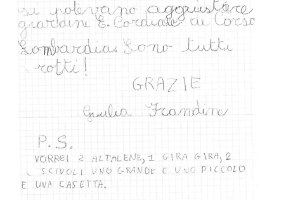 si potevano aggiustare
giardini E. Cordiale di Corso
Lombardia. Sono tutti
rotti!
GRAZIE
Giulia Frandina
P.S.
VORREI 2 ALTALENE, 1 GIRA GIRA, 2
SCIVOLI UNO GRANDE E UNO PICCOLO
E UNA CASETTA.